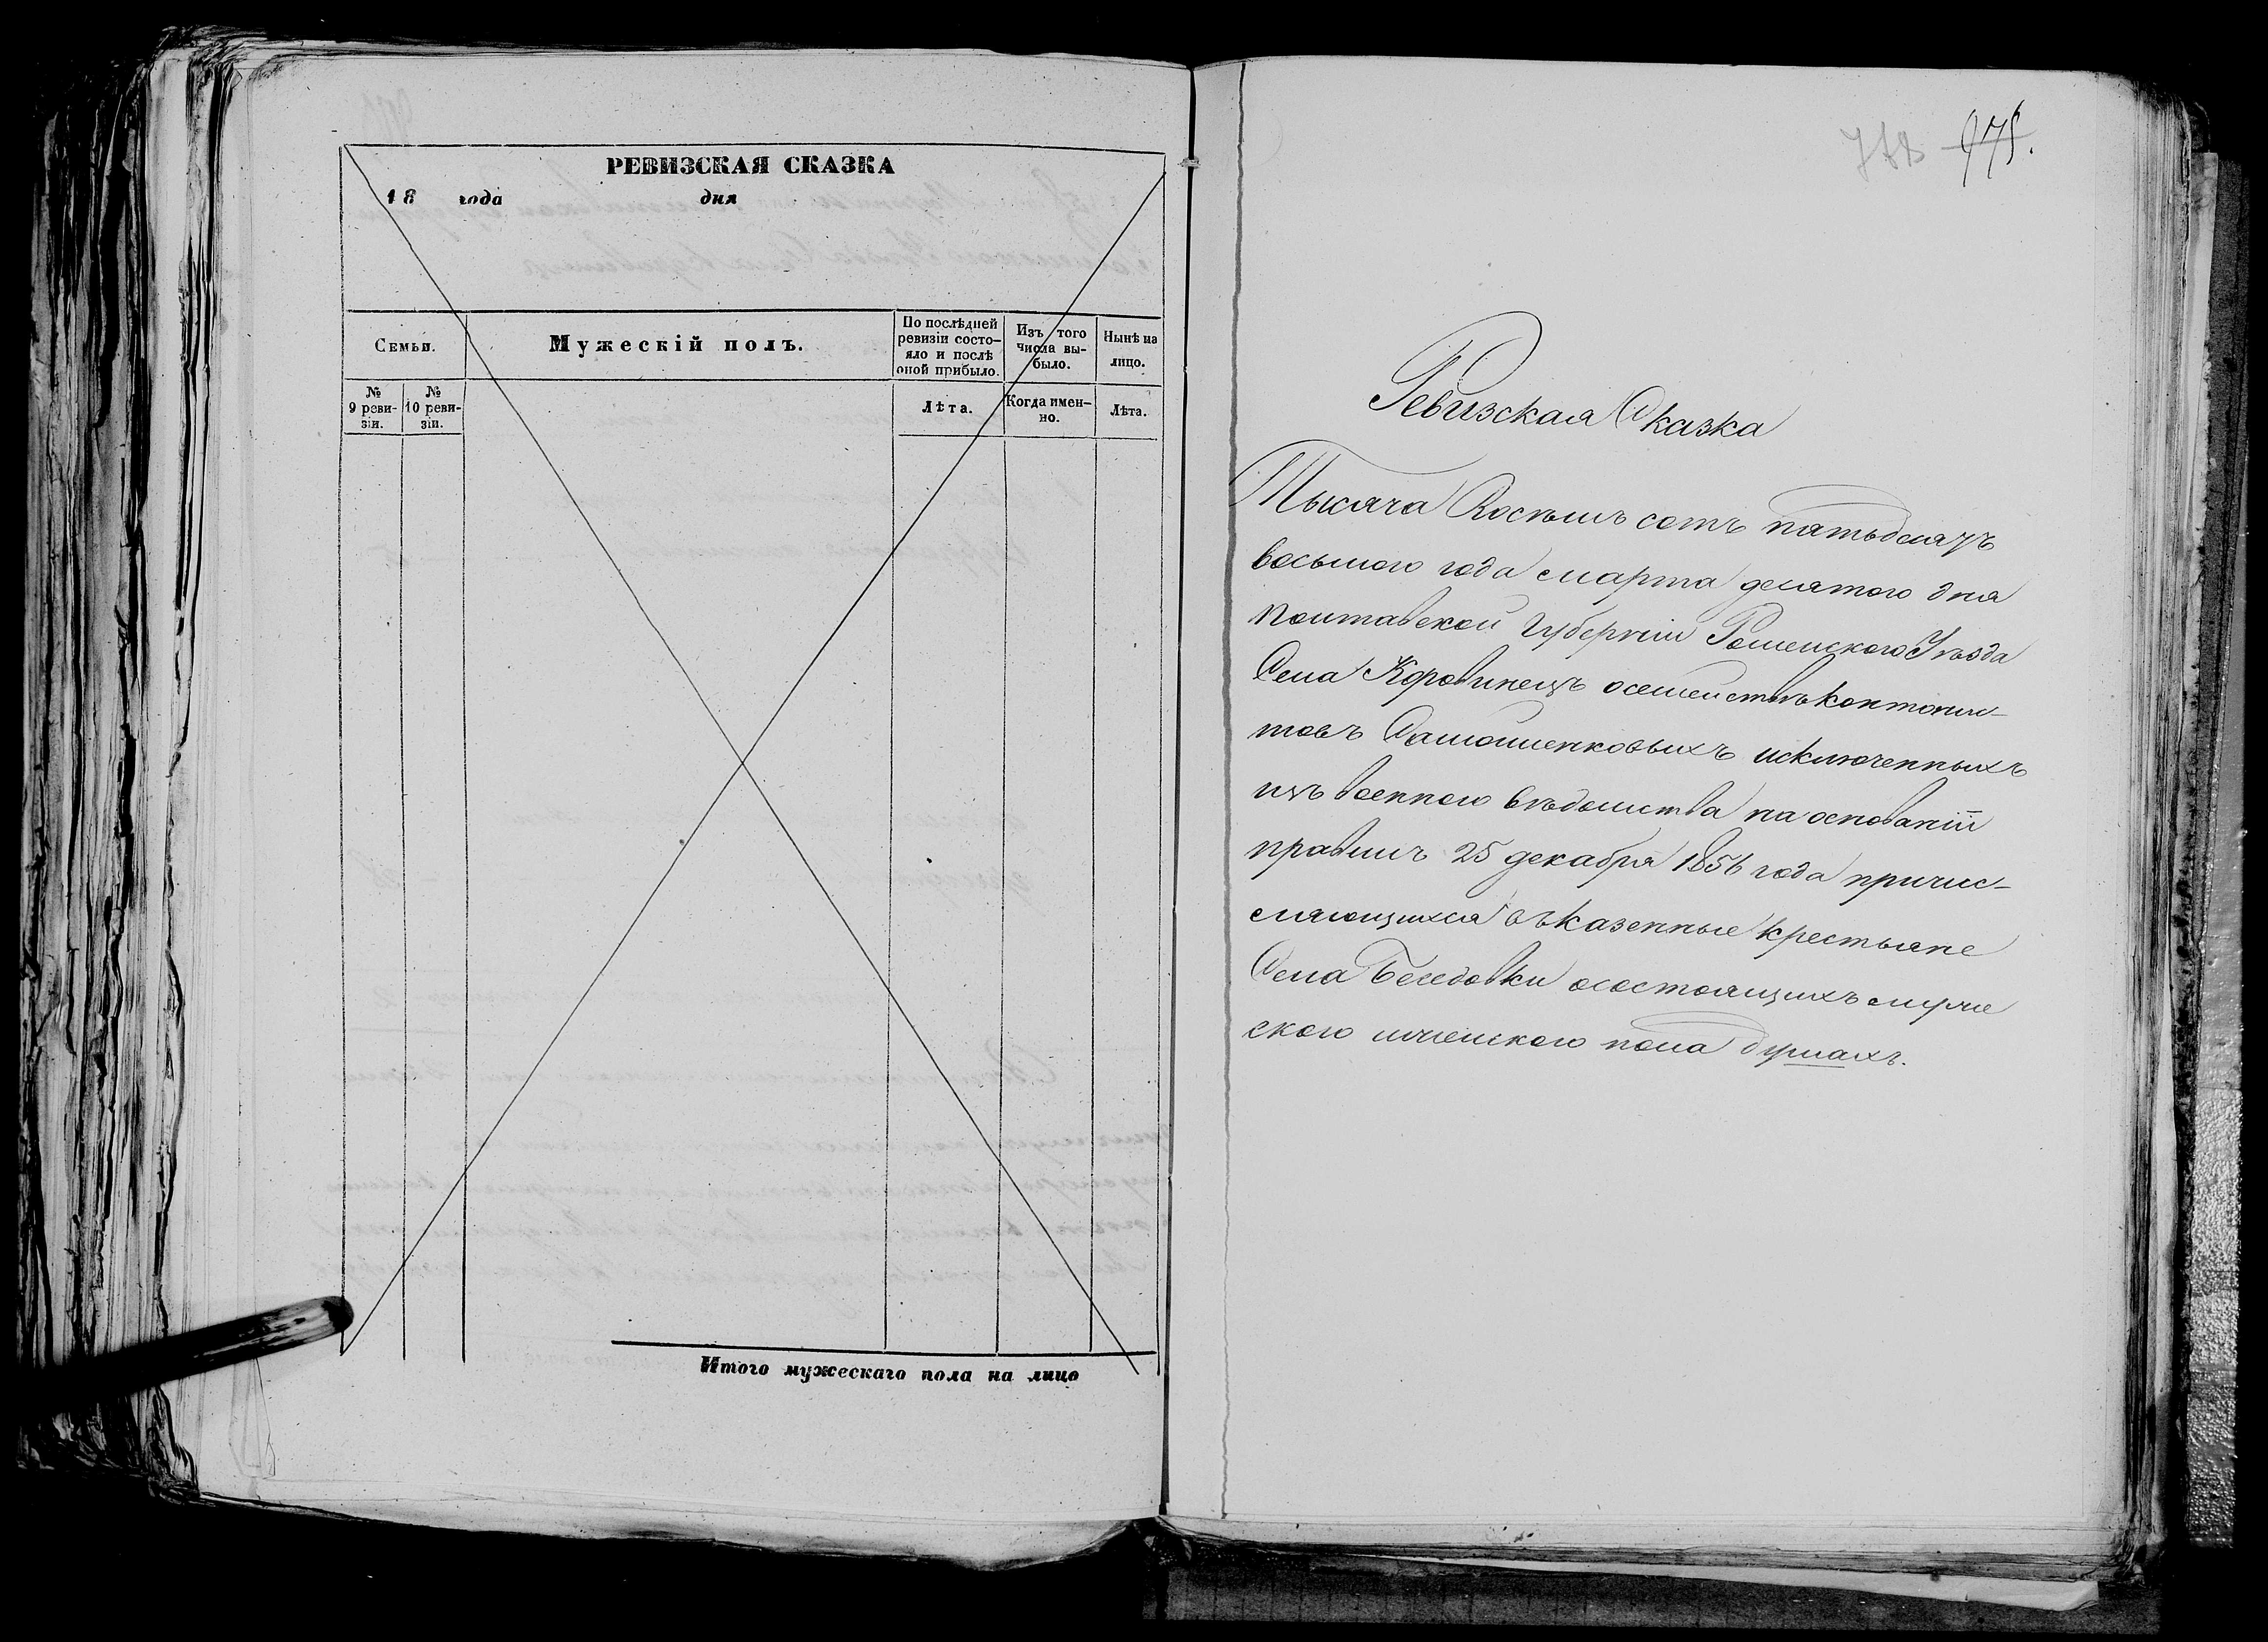 РЕВИЗСКАЯ СКАЗКА
18 года дня
Семьи.
Мужескій полъ.
По послѣдней ревизіи состояло и послѣ оной прибыло.
Изъ того числа выбыло.
Нынѣ на лицо.
№ 9 ревизіи.
№ 10 ревизіи.
Лѣта.
Когда именно.
Лѣта.
Итого мужескаго пола на лицо
975.
Ревизская Сказка
Тысяча Восѣмъ сотъ пятьдесятъ
восьмого года марта десятого дня
Полтавской Губерніи Роменского Уѣзда
Села Коровинецъ осемействѣ контонис-
товъ Самойленковыхъ исключенныхъ
изъ военного вѣдомства на основаніи
правилъ 25 декабря 1856 года причис-
ляющихся въ казенные крестьяне
Села Беседовки осостоящихъ мужс
ского иженского пола душахъ.